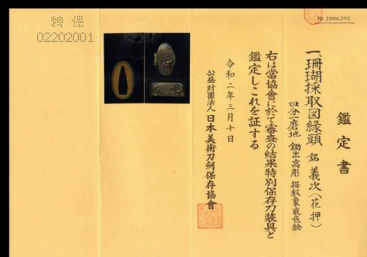 特保
02202001
№ 2006392
鑑定書
一、珊瑚採取図縁頭 銘 義次(花押)
四分一磨地 鋤出高彫 据紋象嵌色絵
右は當協會に於て審査の結果特別保存刀装具と
鑑定しこれを証する
令和二年三月十日
公益財團法人 日本美術刀剣保存協會